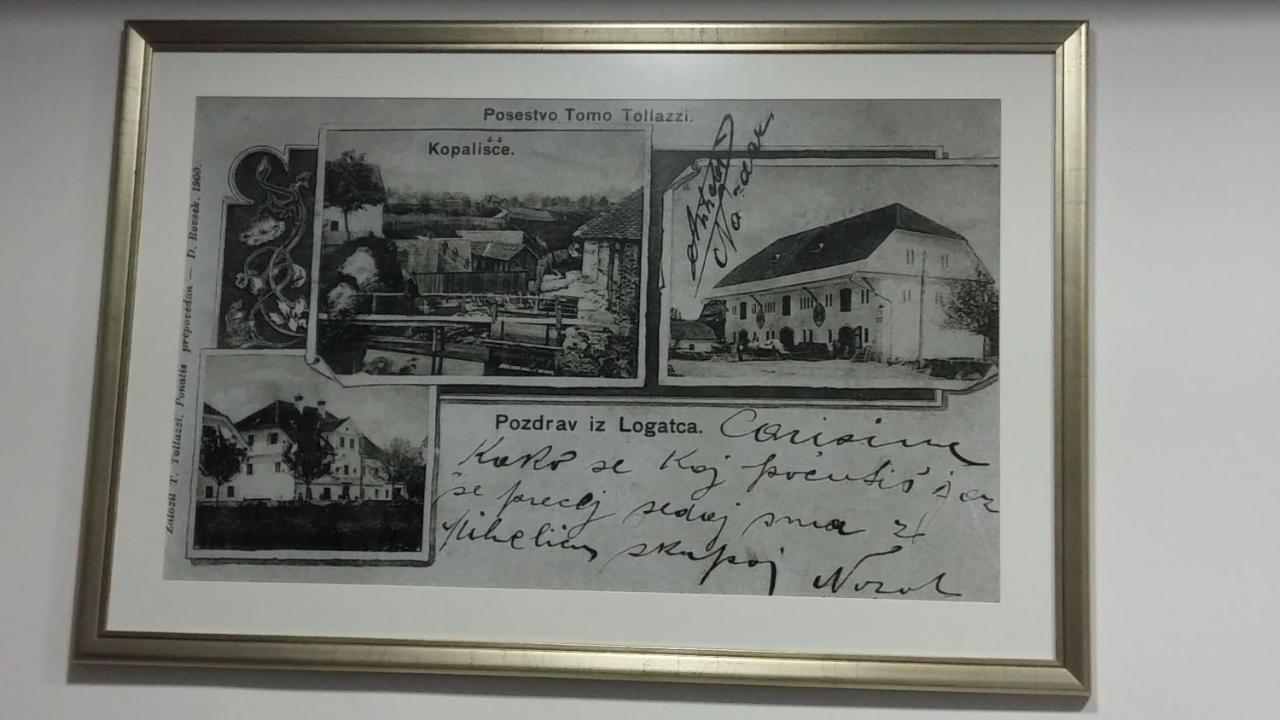 Posestvo Tomo Tollazzi.
Kopališče.
Založil T. Tollazzi. Ponatis prepovedan. — D. Rovšek. 1900.
Na zdar
Pozdrav iz Logatca. Carisime
Kako se kaj počutiš jaz
še precej sedaj smo z
Mihelicem skupaj